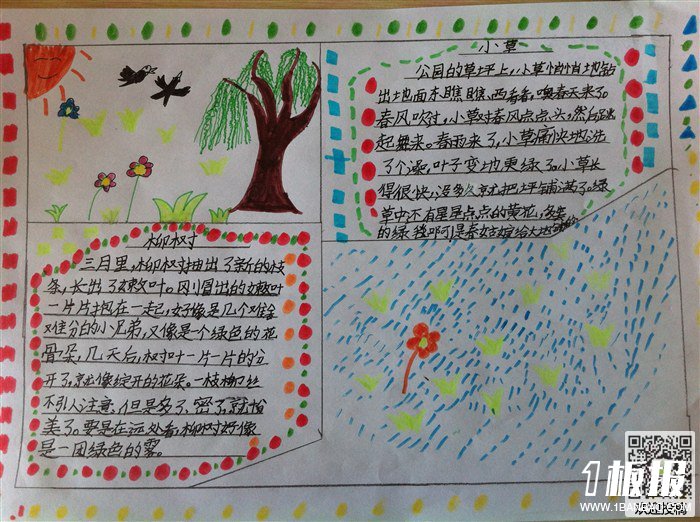 小草
公园的草坪上,小草悄悄地钻
出地面东瞧瞧、西看看,噢春天来了。
春风吹过,小草对春风点点头,然后跳
起舞来。春雨来了,小草痛快地洗
了个澡,叶子变地更绿了。小草长
得很快,没多久就把坪铺满了。绿
草中不有星星点点的黄花,
的绿 哪可是春姑娘给大地
柳树
三月里,柳树抽出了新的枝
条,长出了嫩叶。刚冒出的嫩叶
一片片抱在一起,好像是几个难舍
难分的小兄弟,又像是个绿色的花
骨朵,几天后,树叶一片一片的分
开了,就像绽开的花朵。一枝柳丝
不引人注意,但是多了、密了,就恰
美了。要是在远处看,柳树好像
是一团绿色的雾。
1板报
WWW.1BANBAO.COM
欢迎投稿